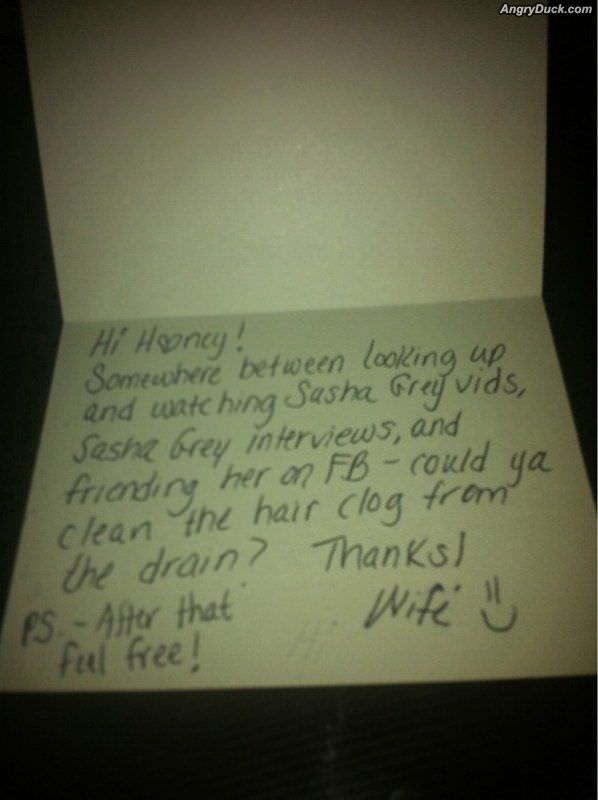 AngryDuck.com
Hi Hooney!
Somewhere between looking up
and watching Sasha Grey vids,
Sasha Grey interviews, and
friending her on FB - could ya
clean the hair clog from
the drain? Thanks!
PS. - After that Wife
feel free!
Hi